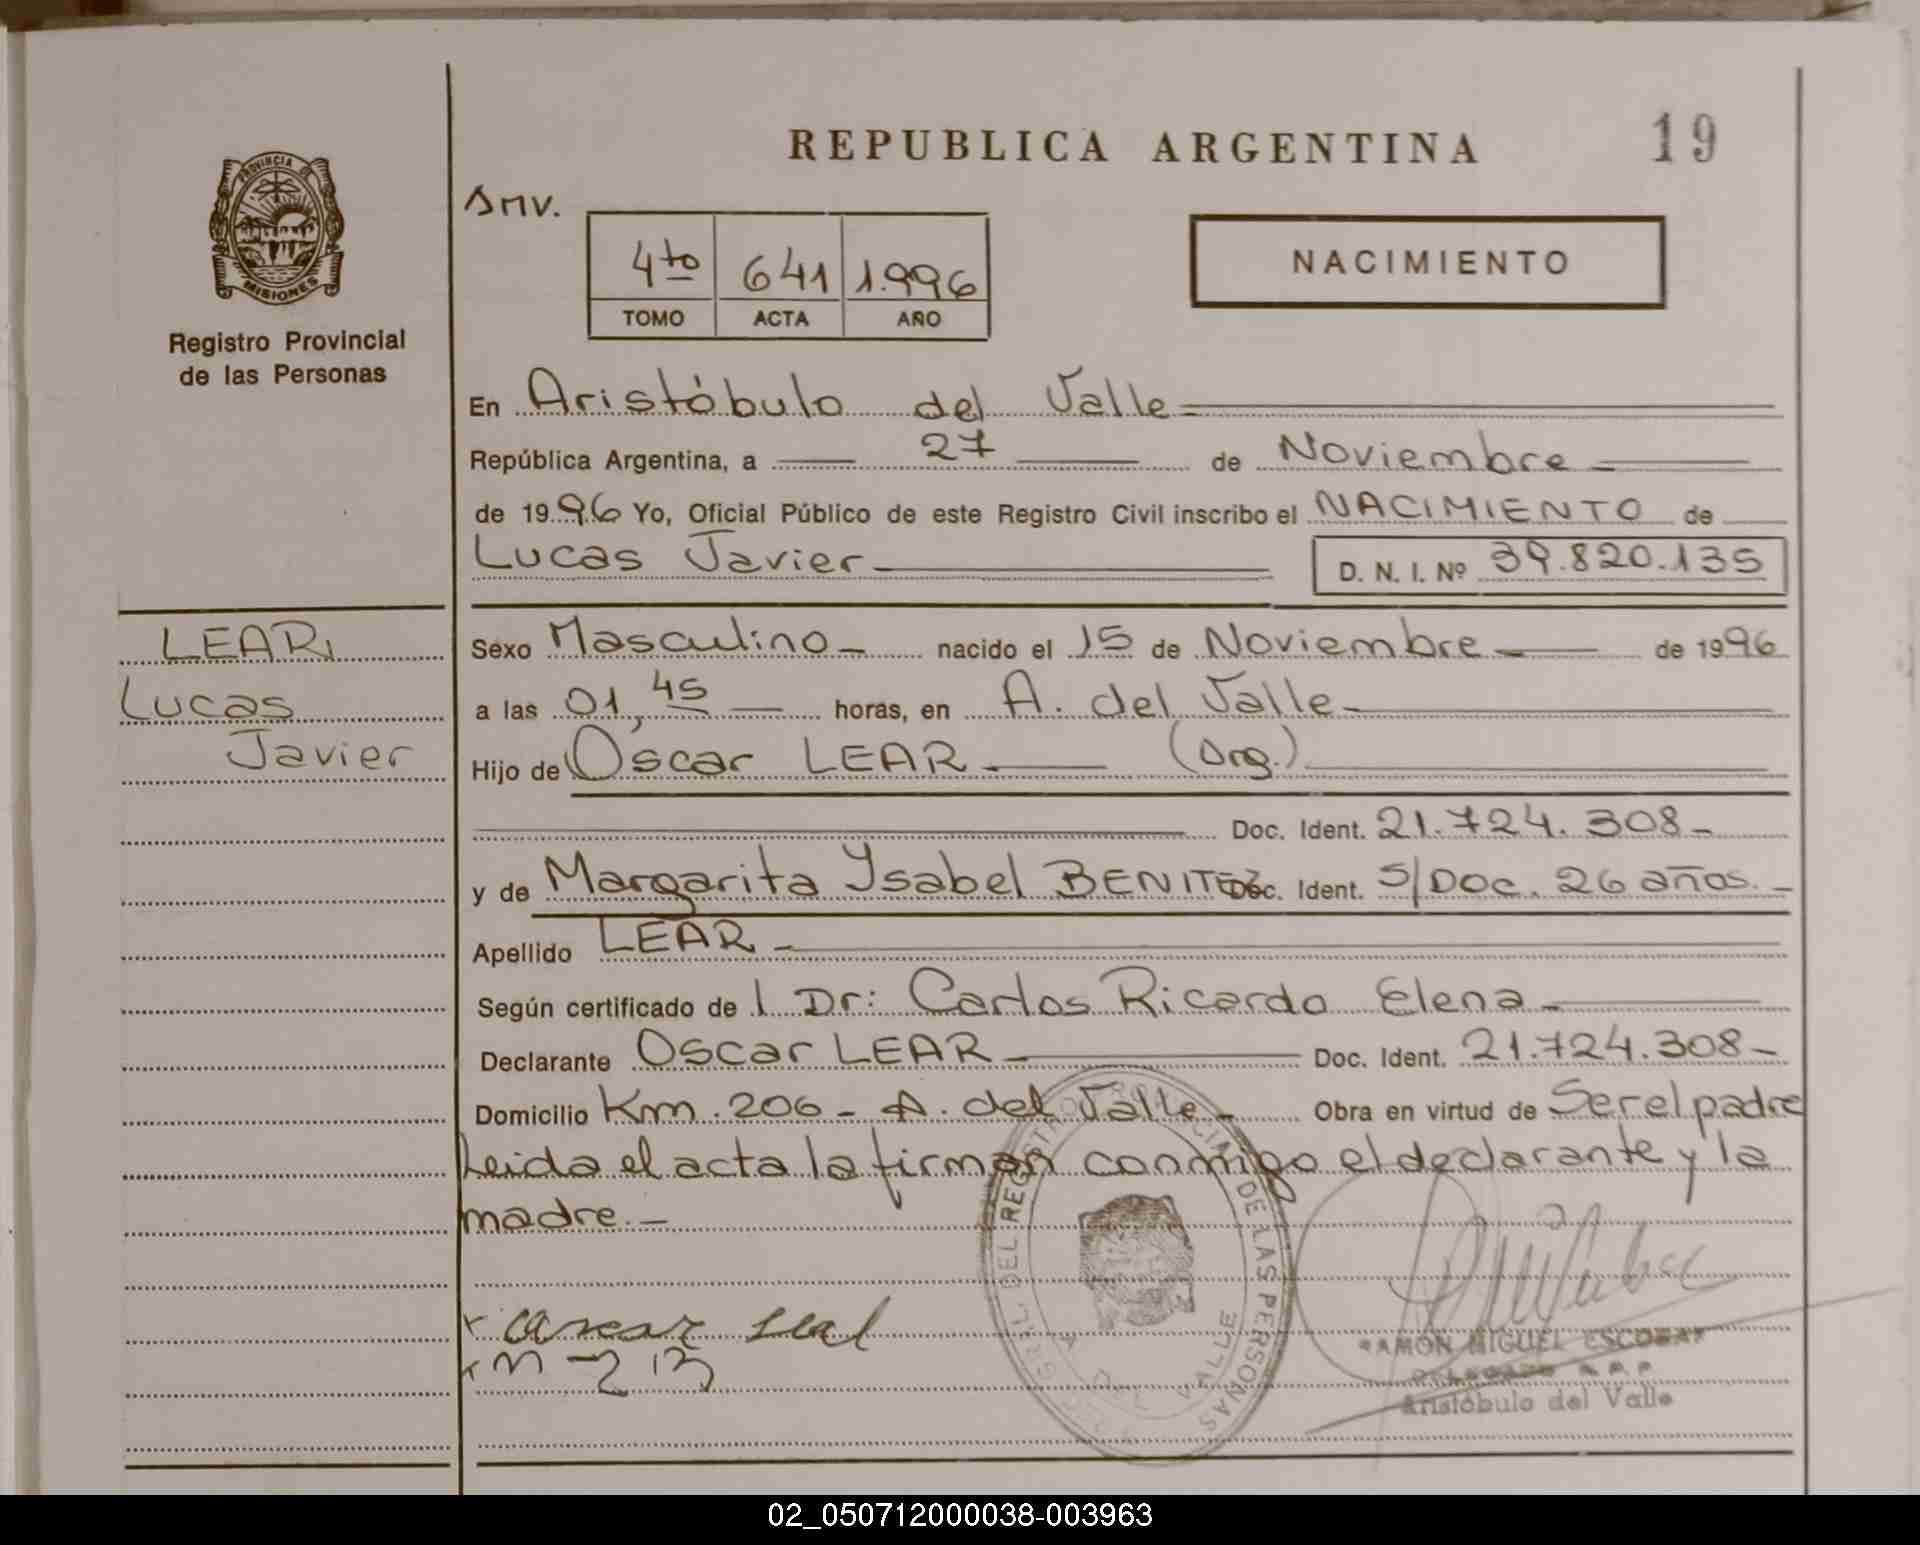 REPUBLICA ARGENTINA 19
PROVINCIA DE
MISIONES
Registro Provincial
de las Personas
SMV.
4to 641 1.996
TOMO ACTA AÑO
NACIMIENTO
En Aristóbulo del Valle
República Argentina, a 27 de Noviembre
de 1996 Yo, Oficial Público de este Registro Civil inscribo el NACIMIENTO de
Lucas Javier D. N. I. Nº 39.820.135
LEAR,
Lucas
Javier
Sexo Masculino nacido el 15 de Noviembre de 1996
a las 01,45 horas, en A. del Valle
Hijo de Oscar LEAR (Arg.)
Doc. Ident. 21.724.308
y de Margarita Ysabel BENITEZ Doc. Ident. S/Doc. 26 años.
Apellido LEAR
Según certificado de l Dr: Carlos Ricardo Elena
Declarante Oscar LEAR Doc. Ident. 21.724.308
Domicilio Km. 206 - A. del Valle Obra en virtud de Ser el padre
Leida el acta la firman conmigo el declarante y la
madre.
REGISTRO PROVINCIAL DE LAS PERSONAS
A. DEL VALLE
RAMON MIGUEL ESCOBAR
DELEGADO R.P.P.
Aristóbulo del Valle
02_050712000038-003963